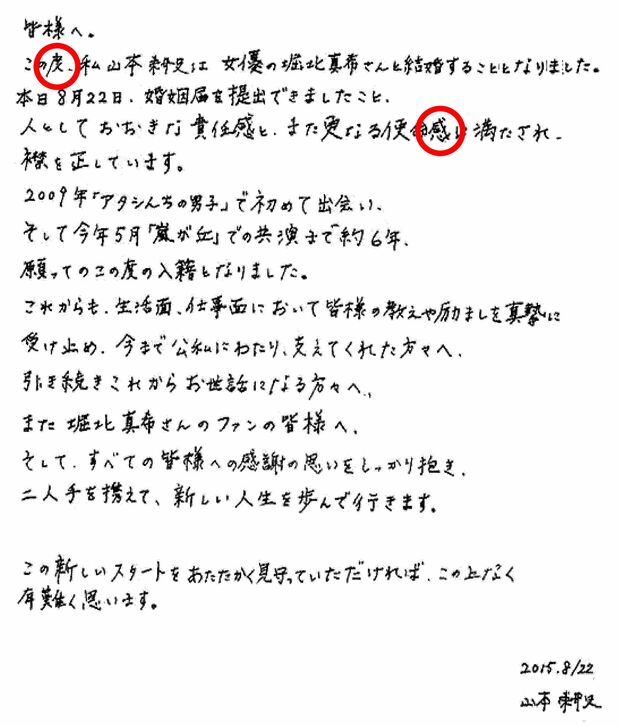 皆様へ。
この度、私山本耕史は女優の堀北真希さんと結婚することとなりました。
本日8月22日、婚姻届を提出できましたこと、
人としておおきな責任感と、また更なる使命感に満たされ、
襟を正しています。
2009年「アタシんちの男子」で初めて出会い、
そして今年5月「嵐が丘」での共演まで約6年、
願ってのこの度の入籍となりました。
これからも、生活面、仕事面において皆様の教えや励ましを真摯に
受け止め、今まで公私にわたり、支えてくれた方々へ、
引き続きこれからお世話になる方々へ、
また堀北真希さんのファンの皆様へ、
そして、すべての皆様への感謝の思いをしっかり抱き、
二人手を携えて、新しい人生を歩んで行きます。
この新しいスタートをあたたかく見守っていただければ、この上なく
有難く思います。
2015.8/22
山本耕史